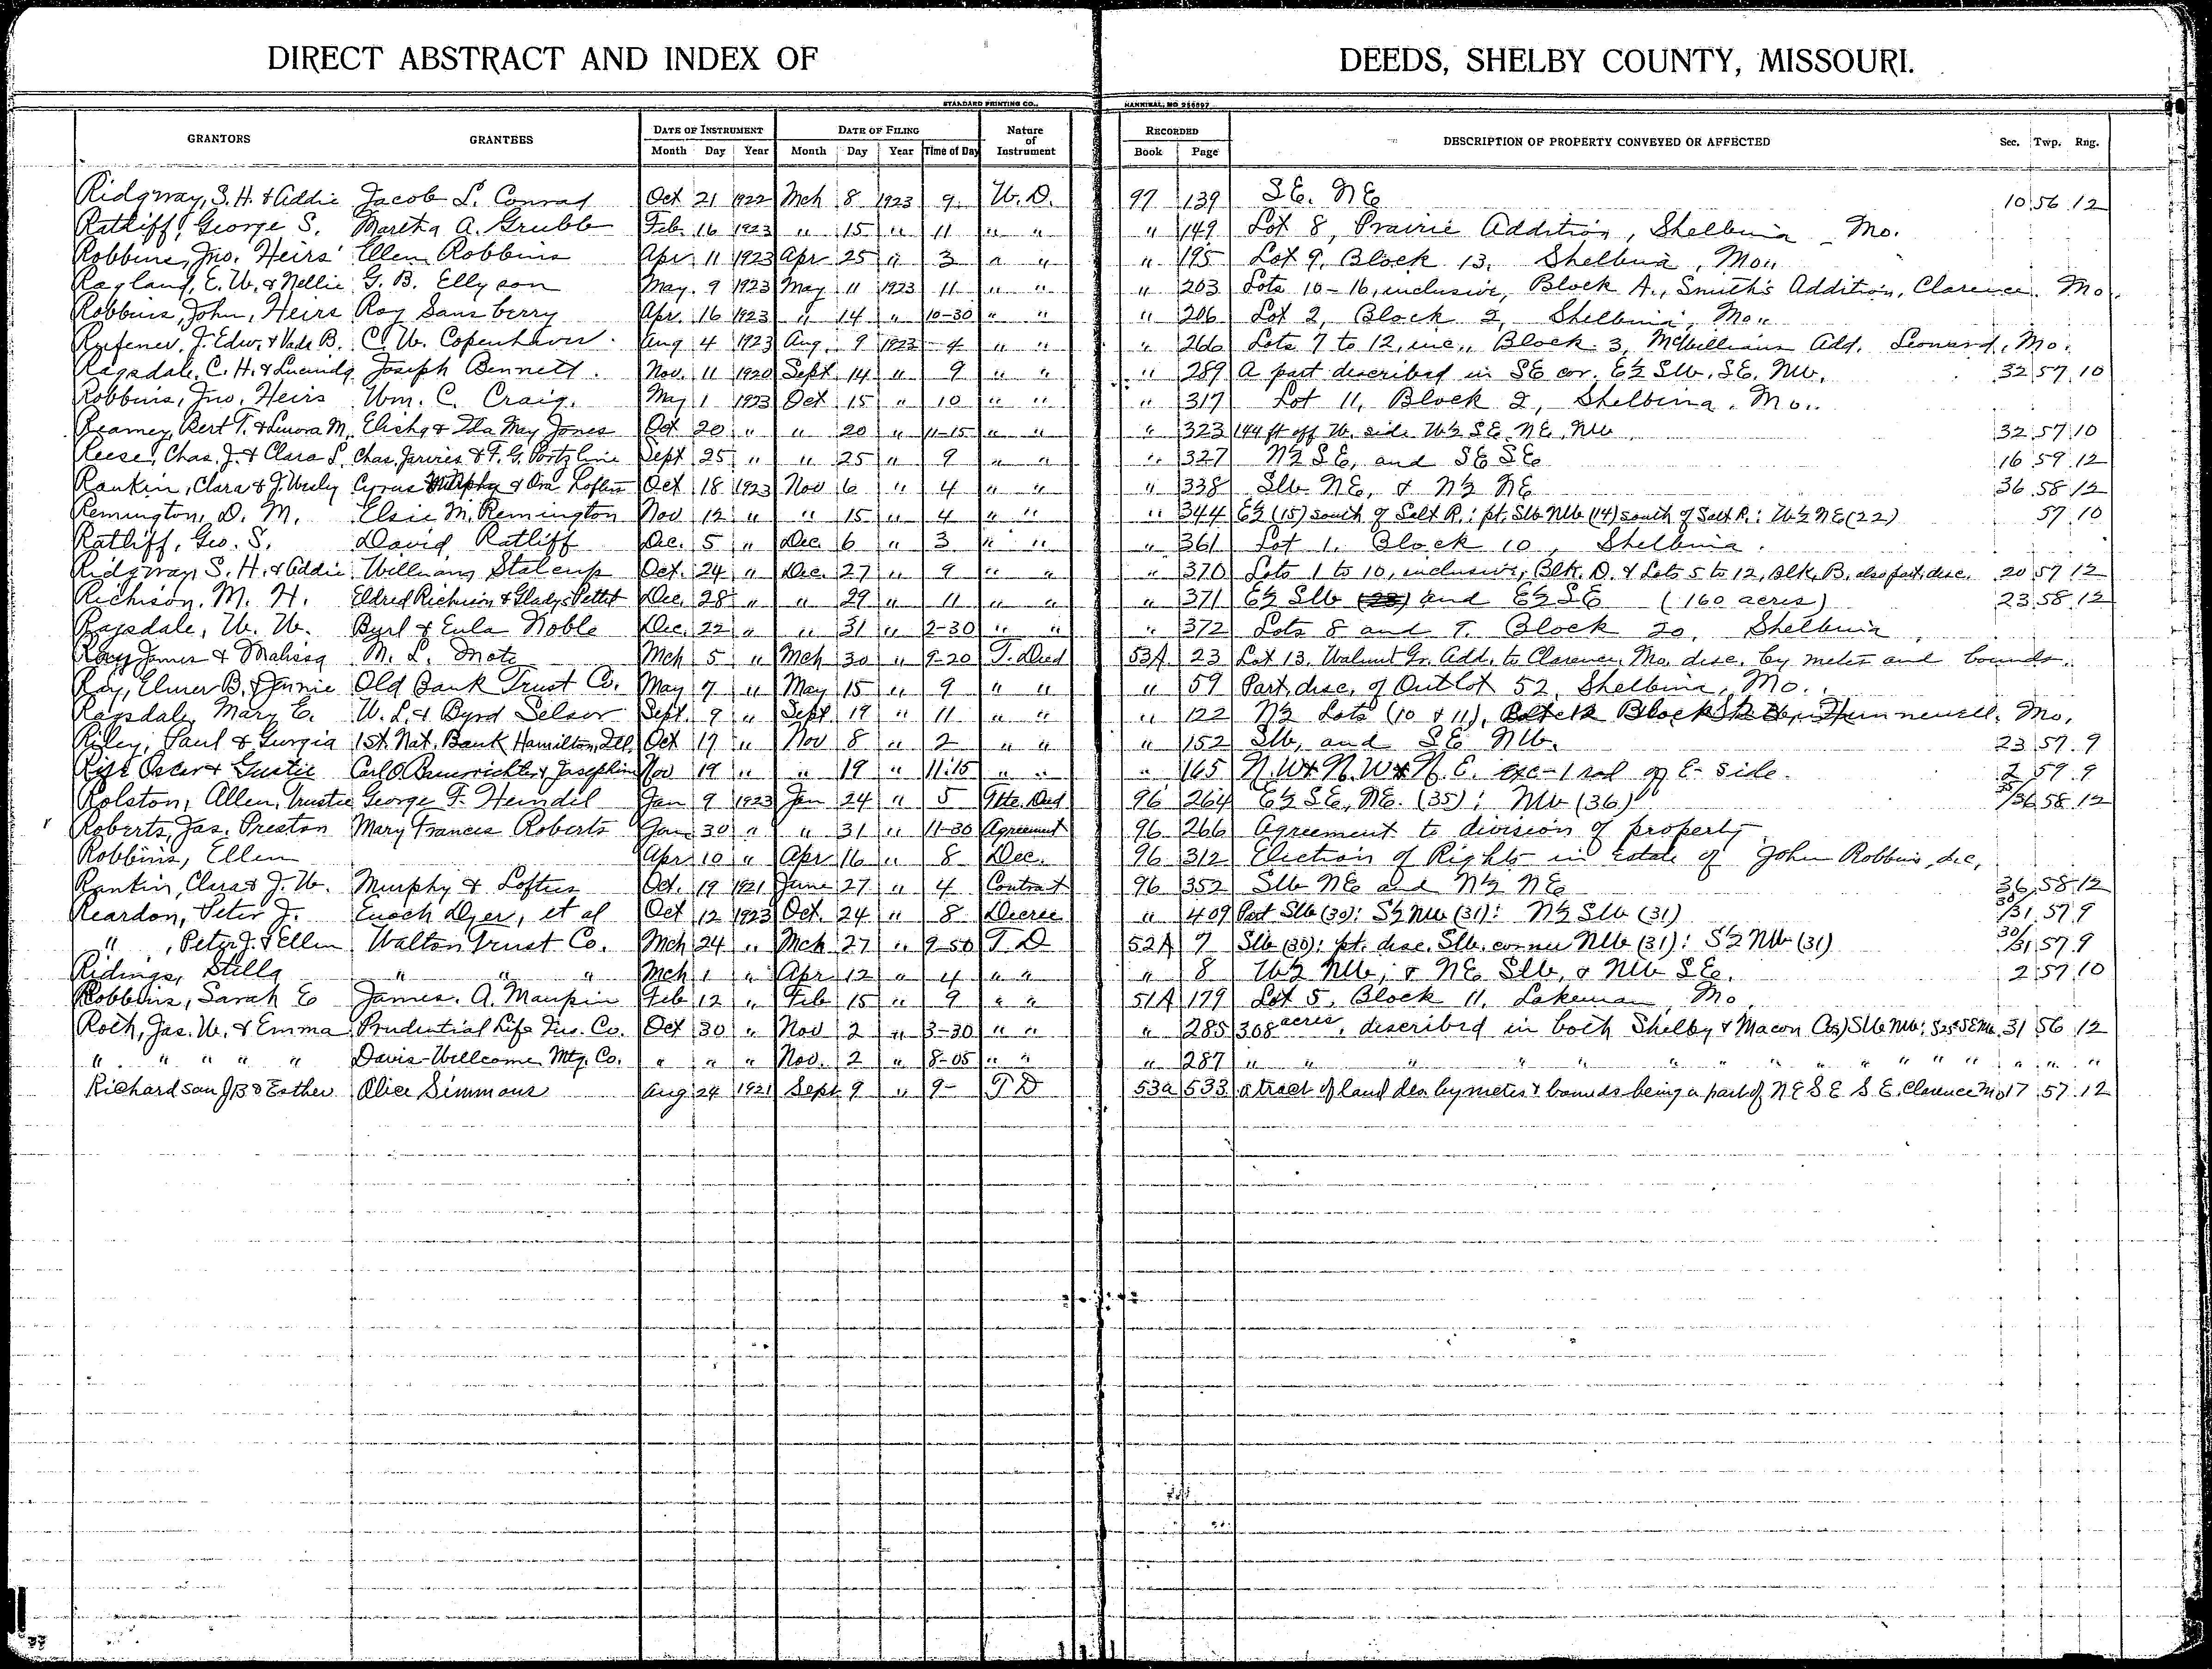 DIRECT ABSTRACT AND INDEX OF DEEDS, SHELBY COUNTY, MISSOURI.
STANDARD PRINTING CO., HANNIBAL, MO
GRANTORS GRANTEES DATE OF INSTRUMENT DATE OF FILING Nature of Instrument RECORDED DESCRIPTION OF PROPERTY CONVEYED OR AFFECTED Sec. Twp. Rng.
Month Day Year Month Day Year Time of Day Book Page
Ridgway, S. H. & Addie Jacob L. Conrad Oct 21 1922 Mch 8 1923 9 W. D. 97 139 S.E. NE 10 56 12
Ratliff, George S. Martha A. Grubb Feb 16 1923 " 15 " 11 " " " 149 Lot 8, Prairie Addition, Shelbina Mo.
Robbins, Jno. Heirs Ellen Robbins Apr 11 1923 Apr 25 " 3 " " " 195 Lot 9, Block 13, Shelbina, Mo.
Ragland, E. W. & Nellie G. B. Ellyson May 9 1923 May 11 1923 11 " " " 203 Lots 10-16, inclusive, Block A., Smith's Addition, Clarence, Mo.
Robbins, John, Heirs Roy Sansberry Apr. 16 1923 " 14 " 10-30 " " " 206 Lot 2, Block 2, Shelbina, Mo.
J. Edw. & B. C. W. Copenhaver Aug 4 1923 Aug. 9 1923 4 " " " 266 Lots 7 to 12, inc., Block 3, McWilliams Add. Leonard, Mo.
Ragsdale, C. H. & Lucinda Joseph Bennett Nov. 11 1920 Sept 14 " 9 " " " 289 A part described in SE cor. E½ SW, SE, NW. 32 57 10
Robbins, Jno, Heirs Wm. C. Craig May 1 1923 Oct 15 " 10 " " " 317 Lot 11, Block 2, Shelbina, Mo.
Reamey, Bert T. & Lenora M. Elisha & Ida May Jones Oct 20 " " 20 " 11-15 " " " 323 144 ft off W. side W½ SE, NE, NW 32 57 10
Reese, Chas. J. & Clara S. Chas. Jarvies & F. G. Portzline Sept 25 " " 25 " 9 " " " 327 N½ SE, and SE SE 16 59 12
Rankin, Clara & J. Wesly Cyrus Murphy & Ora Loftus Oct 18 1923 Nov 6 " 4 " " " 338 SW NE, & N½ NE 36 58 12
Remington, D. M. Elsie M. Remington Nov 12 " " 15 " 4 " " " 344 E½ (15) south of Salt R.; pt. SW NW (14) south of Salt R.; W½ NE (22) 57 10
Ratliff, Geo. S. David Ratliff Dec. 5 " Dec. 6 " 3 " " " 361 Lot 1, Block 10, Shelbina.
Ridgway, S. H. & Addie William Stalcup Oct. 24 " Dec. 27 " 9 " " " 370 Lots 1 to 10, inclusive, Blk. D. & Lots 5 to 12, Blk. B. also part, desc. 20 57 12
Richison, M. H. Eldred Richison & Gladys Pettit Dec. 28 " " 29 " 11 " " " 371 E½ SW (23) and E½ SE (160 acres) 23 58 12
Ragsdale, W. W. Byrl & Eula Noble Dec. 22 " " 31 " 2-30 " " " 372 Lots 8 and 7. Block 20, Shelbina
Ray, James & Malissa M. L. Mote Mch 5 " Mch 30 " 9-20 T. Deed 53A 23 Lot 13. Walnut Gr. Add. to Clarence, Mo. desc. by metes and bounds.
Ray, Elmer B. & Jennie Old Bank Trust Co. May 7 " May 15 " 9 " " " 59 Part, desc. of Outlot 52, Shelbina, Mo.
Ragsdale, Mary E. W. L. & Byrd Selsor Sept. 9 " Sept 19 " 11 " " " 122 N½ Lots (10 & 11), Block Hunnewell, Mo.
Riley, Paul & Georgia 1st. Nat. Bank Hamilton, Ill. Oct 17 " Nov 8 " 2 " " " 152 SW, and SE NW. 23 57 9
Oscar & Gustie Carl O & Josephine Nov 19 " " 19 " 11:15 " " " 165 N.W & N.W & N.E. exc-1 rod off E-side. 2 59 9
Rolston, Allen, Trustee George F. Heindel Jan 9 1923 Jan 24 " 5 Qtte. Deed 96 264 E½ SE, NE. (35); NW (36) 35/36 58 12
Roberts, Jas. Preston Mary Frances Roberts Jan 30 " " 31 " 11-30 Agreement 96 266 Agreement to division of property
Robbins, Ellen Apr 10 " Apr 16 " 8 Dec. 96 312 Election of Rights in Estate of John Robbins, dec.
Rankin, Clara & J. W. Murphy & Loftus Oct. 19 1921 June 27 " 4 Contract 96 352 SW NE and N½ NE 36 58 12
Reardon, Peter J. Enoch Dyer, et al Oct 12 1923 Oct. 24 " 8 Decree " 409 Part SW (30); S½ NW (31); N½ SW (31) 30/31 57 9
" , Peter J. & Ellen Walton Trust Co. Mch 24 " Mch 27 " 9-50 T. D 52A 7 SW (30); pt. desc. SW. corner NW (31); S½ NW (31) 30/31 57 9
Ridings, Stella " " " Mch 1 " Apr 12 " 4 " " " 8 W½ NW, & NE SW, & NW SE. 2 57 10
Robbins, Sarah E James. A. Maupin Feb 12 " Feb 15 " 9 " " 51A 179 Lot 5, Block 11, Lakenan, Mo.
Roth, Jas. W. & Emma Prudential Life Ins. Co. Oct 30 " Nov 2 " 3-30 " " " 285 308 acres, described in both Shelby & Macon SW NW; 31 56 12
" " " " " Davis-Willcome Mtg. Co. " " " Nov. 2 " 8-05 " " " 287 " " " " " " " " " " " " " " "
Richardson J B & Esther Alice Simmons Aug 24 1921 Sept 9 " 9- T D 53a 533 a tract of land des. by metes & bounds being a part of N E S E S E. Clarence Mo 17 57 12